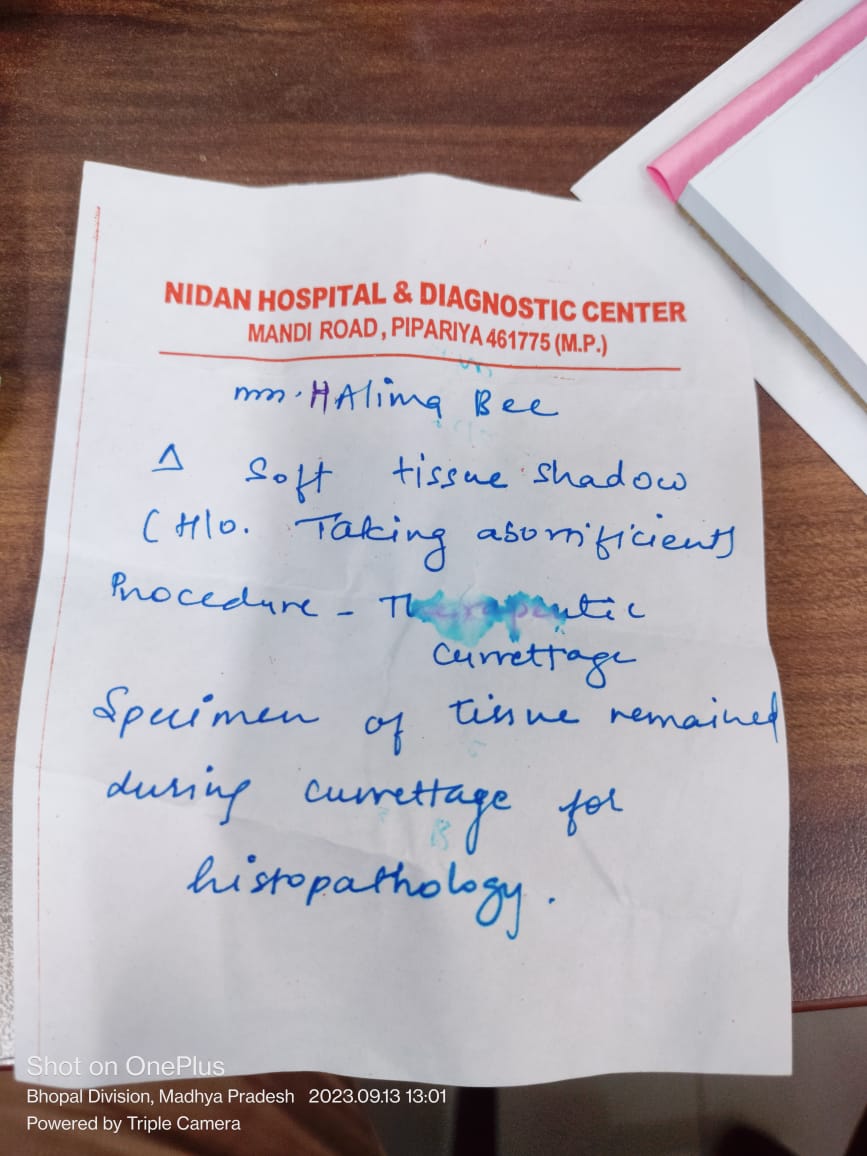 NIDAN HOSPITAL & DIAGNOSTIC CENTER
MANDI ROAD, PIPARIYA 461775 (M.P.)
Mrs. HAlima Bee
Δ Soft tissue shadow
(H/o. Taking abortificients
Procedure - Therapeutic
currettage
Specimen of tissue remained
during currettage for
histopathology.
Shot on OnePlus
Bhopal Division, Madhya Pradesh 2023.09.13 13:01
Powered by Triple Camera